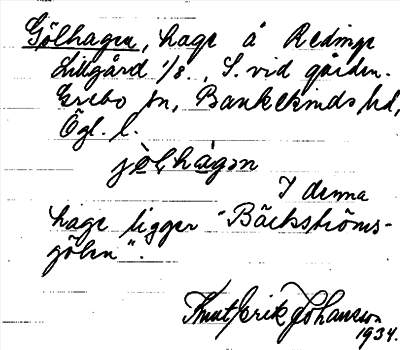 Gölhagen, hage å Redinge
Lillgård 1/8., S. vid gården.
Grebo sn, Bankekinds hd,
Ögl. l.
jö̀lhàgɘn
I denna
hage ligger "Bäckströms-
gölen".
Knut Erik Johanson
1934.